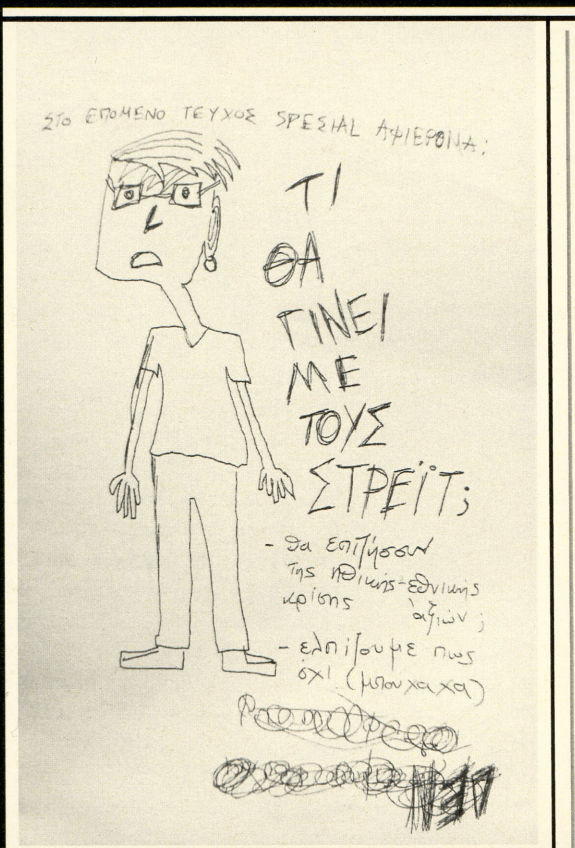 ΣΤΟ ΕΠΟΜΕΝΟ ΤΕΥΧΟΣ SPEΣIAL ΑΦΙΕΡΩΜΑ:
ΤΙ
ΘΑ
ΓΙΝΕΙ
ΜΕ
ΤΟΥΣ
ΣΤΡΕΪΤ;
- θα επιζήσουν
της ηθικής-εθνικής
κρίσης αξιών;
- ελπίζουμε πως
όχι (μπουχαχα)